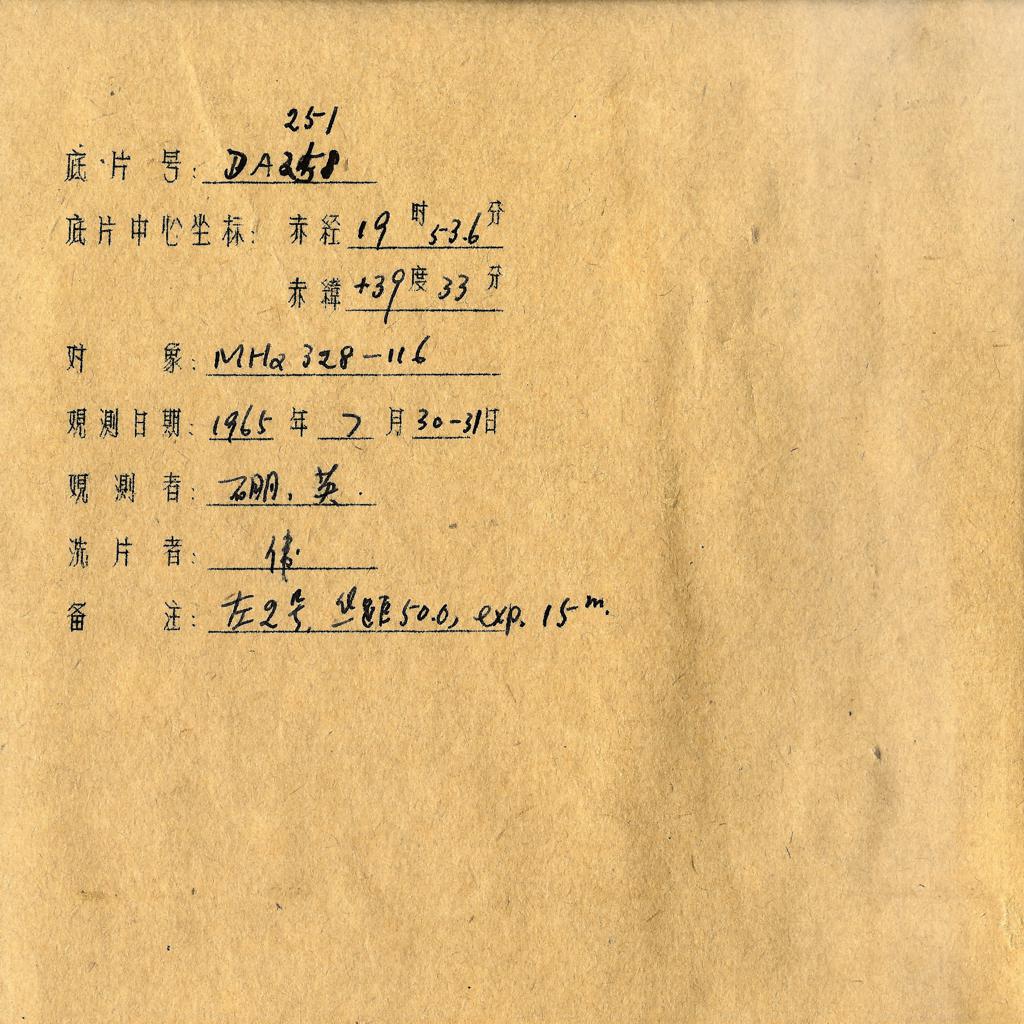 251
底片号: DA258
底片中心坐标: 赤经 19时 53.6分
赤緯 +39度 33分
对象: MHα 328-116
观测日期: 1965年 7月 30-31日
观测者: 硼, 英.
洗片者: 伟
备注: 左2号, 丝距50.0, exp. 15m.